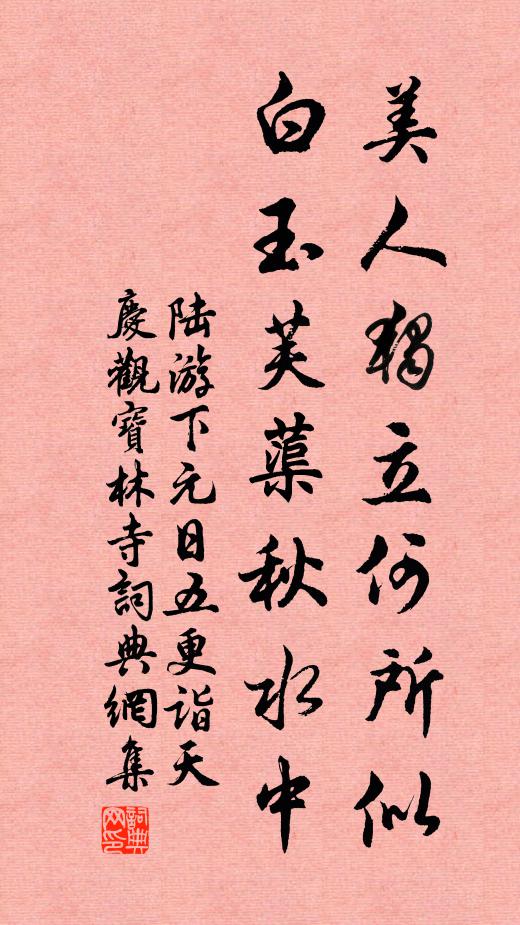 美人獨立何所似
白玉芙蕖秋水中
陆游下元日五更詣天
慶觀寶林寺詞典網集
詞典
网印